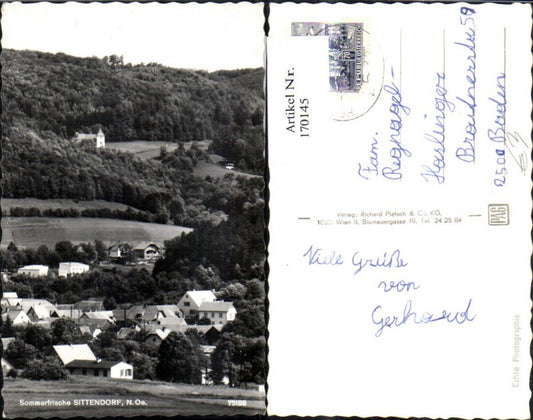 Sommerfrische SITTENDORF, N.Oe.
Artikel Nr.
170145
Fam.
2500 Baden
Verlag: Richard Pietsch & Co. KG.
1020 Wien II, Blumauergasse 19, Tel. 24 25 84
PAG
Viele Grüße
von
Gerhard
Echte Photographie